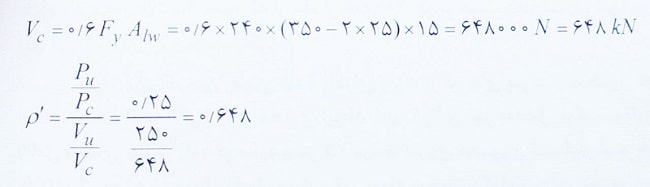 V_c = ۰/۶ F_y A_lw = ۰/۶ × ۲۴۰ × (۳۵۰ − ۲ × ۲۵) × ۱۵ = ۶۴۸۰۰۰ N = ۶۴۸ kN
ρ′ = (P_u / P_c) / (V_u / V_c) = ۰/۲۵ / (۲۵۰ / ۶۴۸) = ۰/۶۴۸